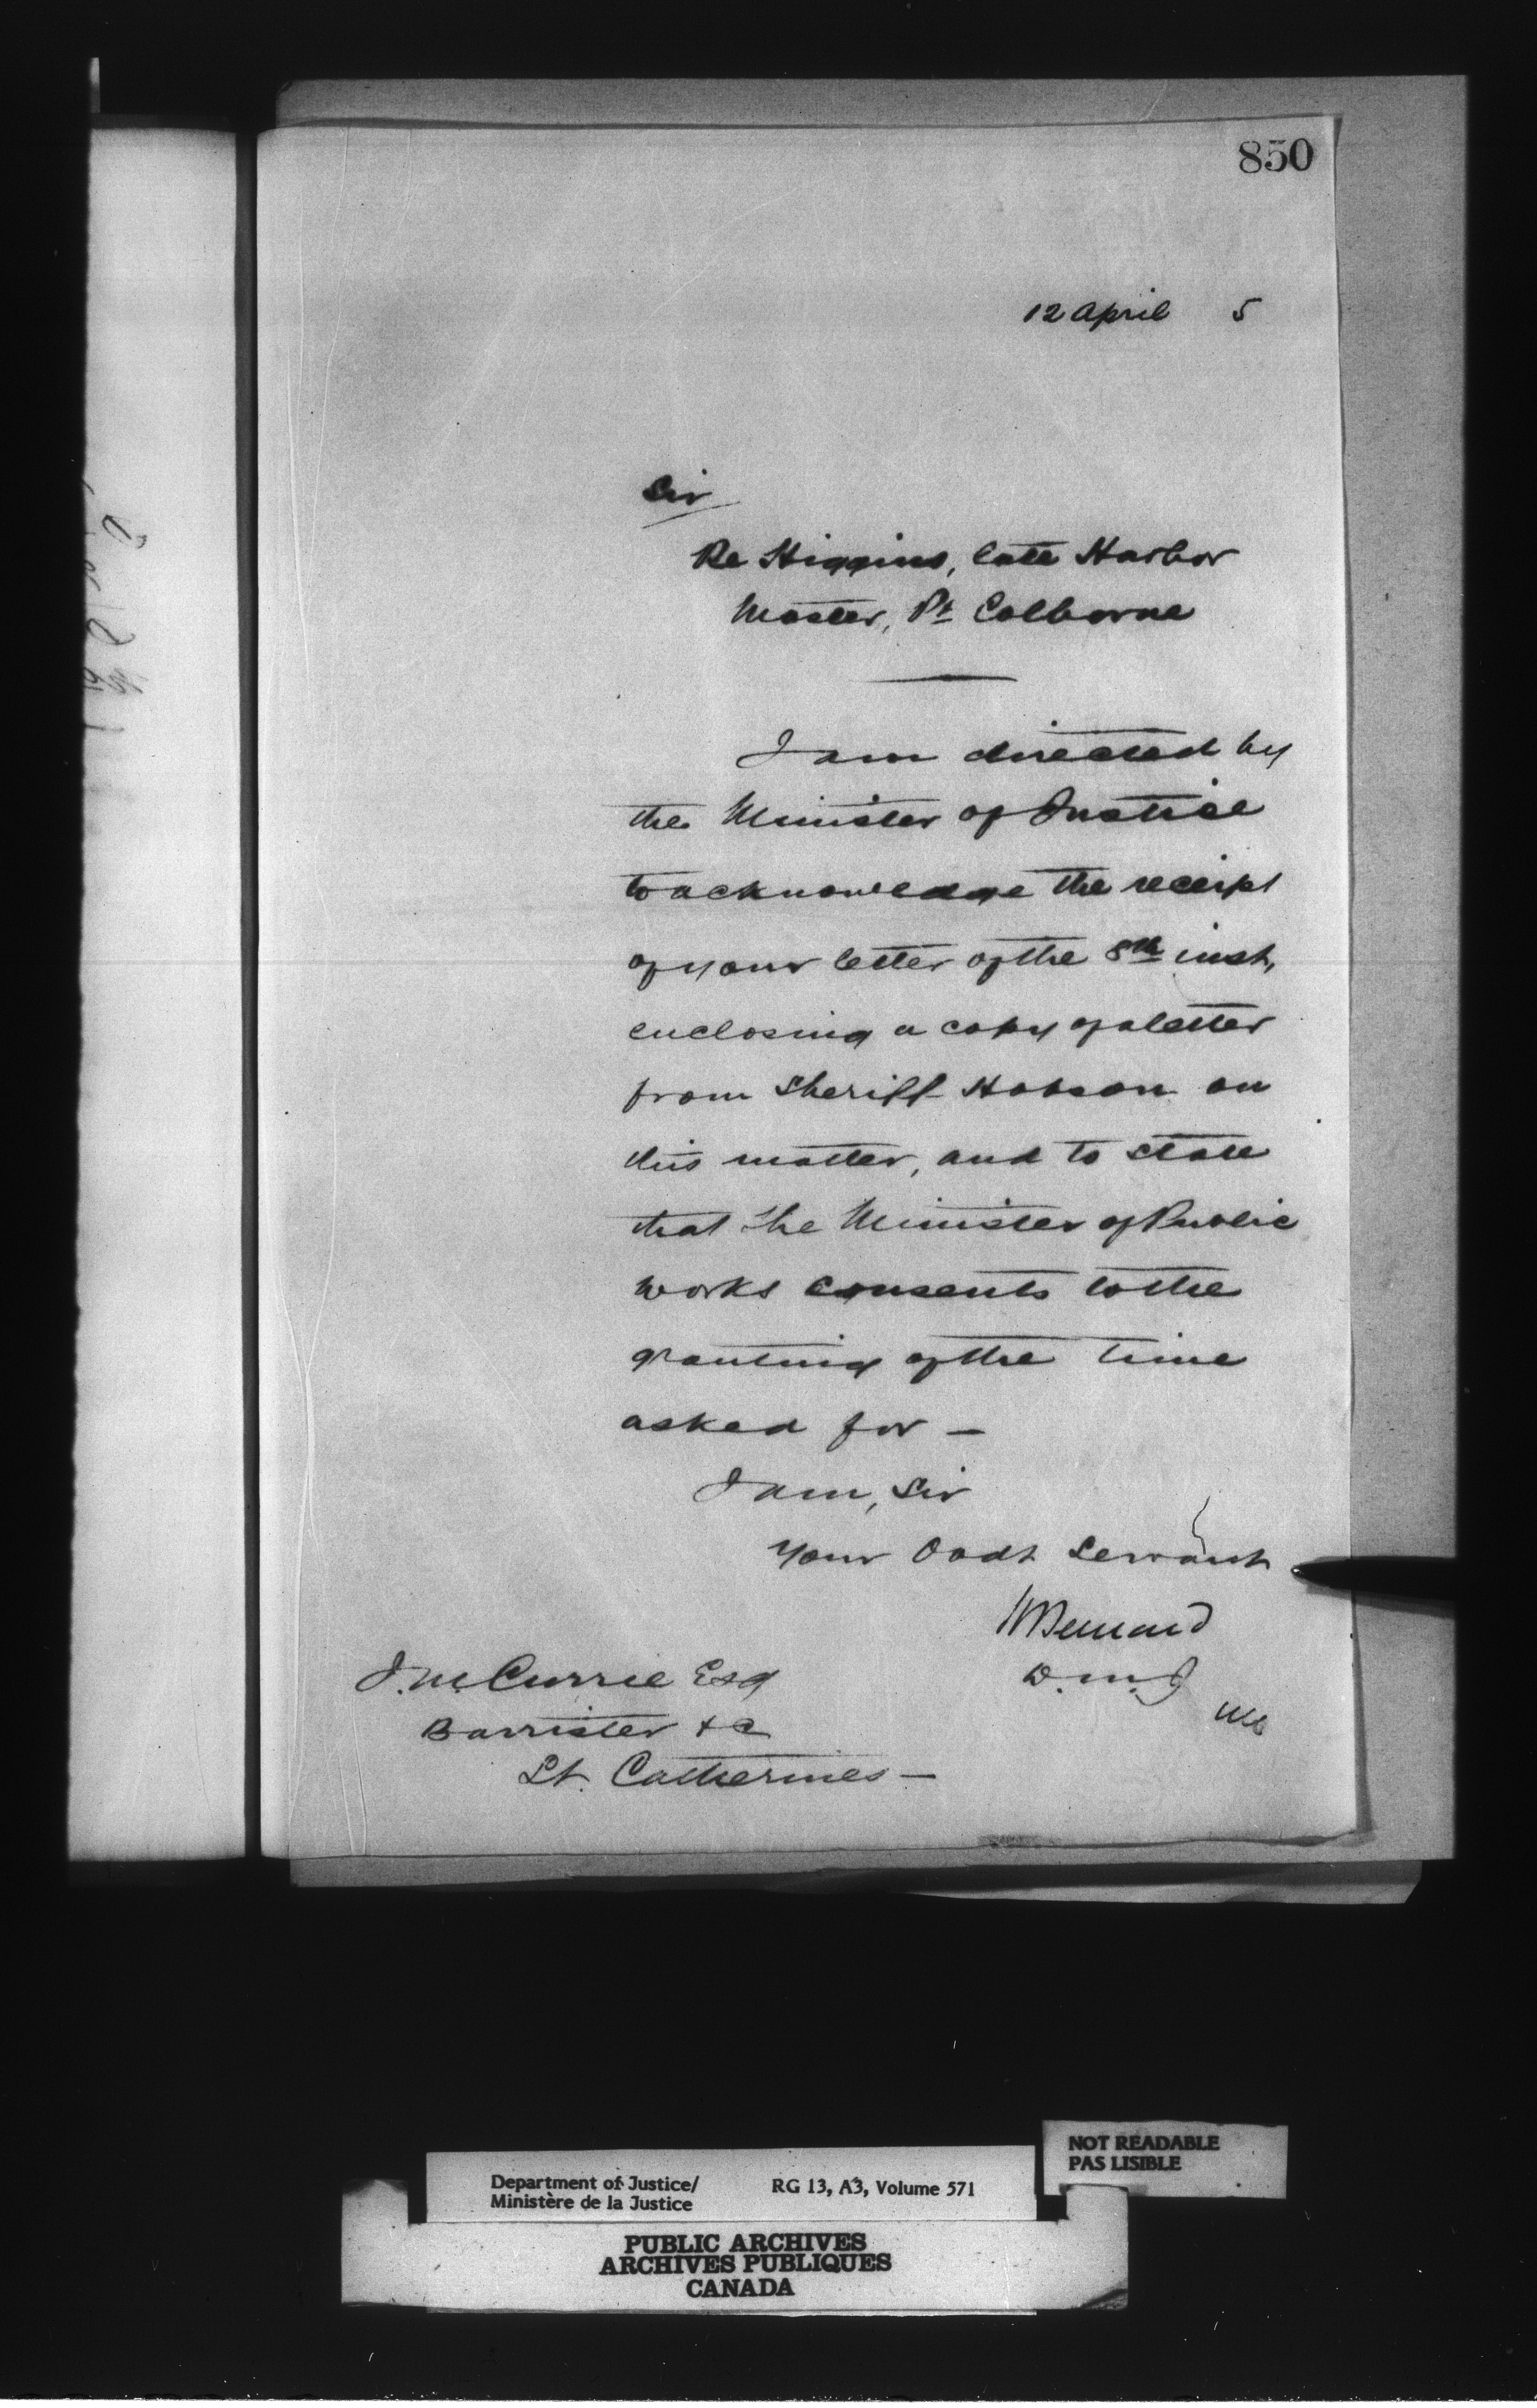 850
12 April 5
Sir
Re Higgins, late Harbor
Master, Pt Colborne
I am directed by
the Minister of Justice
to acknowledge the receipt
of your letter of the 8th inst,
enclosing a copy of a letter
from Sheriff Hobson on
this matter, and to state
that the Minister of Public
Works consents to the
granting of the time
asked for —
I am, Sir
Your Obdt Servant
HBernard
D.M.J
J. M. Currie Esq
Barrister &c
St. Catherines —
NOT READABLE
PAS LISIBLE
Department of Justice/
Ministère de la Justice
RG 13, A3, Volume 571
PUBLIC ARCHIVES
ARCHIVES PUBLIQUES
CANADA